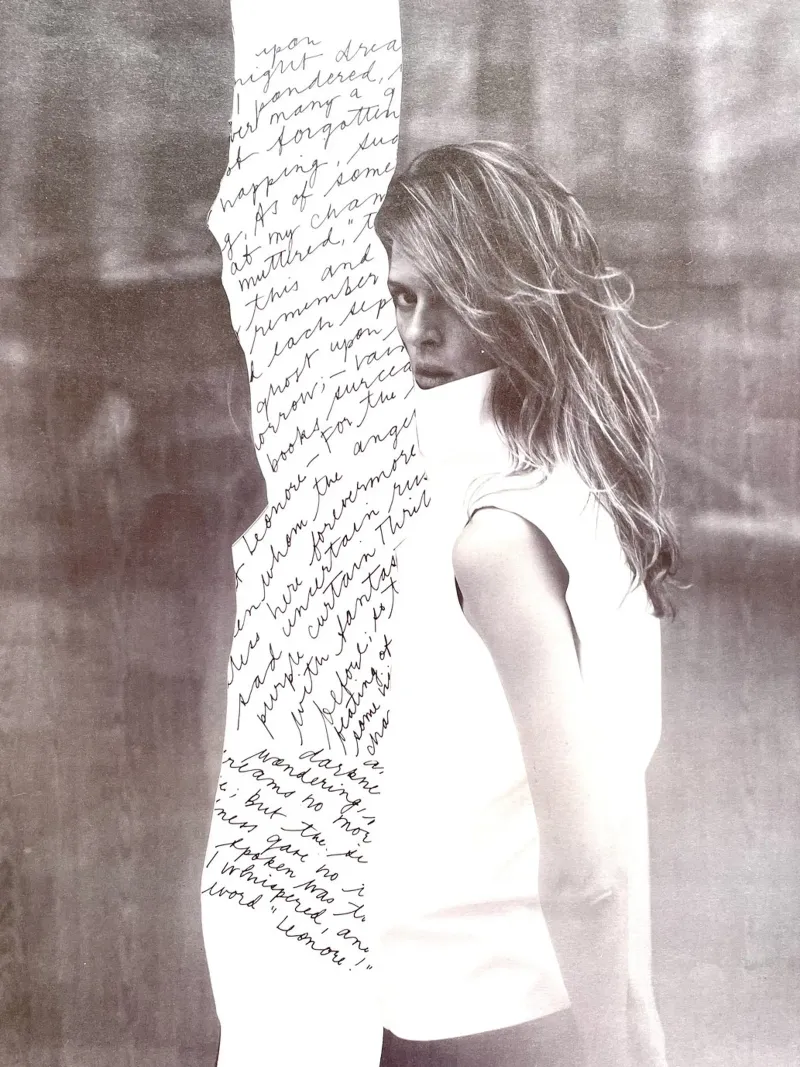 upon
night drea
I pondered,
ver many a
of forgotten
napping, suc
g. As of some
at my cham
muttered, "t
this and
remember
d each sep
ghost upon
orrow;- vain
books surcea
Leonore - For the
whom the angel
less here forevermore
sad uncertain rus
purple curtain Thril
with fantas
before; so t
beating of
some
cha
a
darkne
wondering,
reams no mor
e; but the si
ness gave no
spoken was
I whispered, an
word "Leonore!"